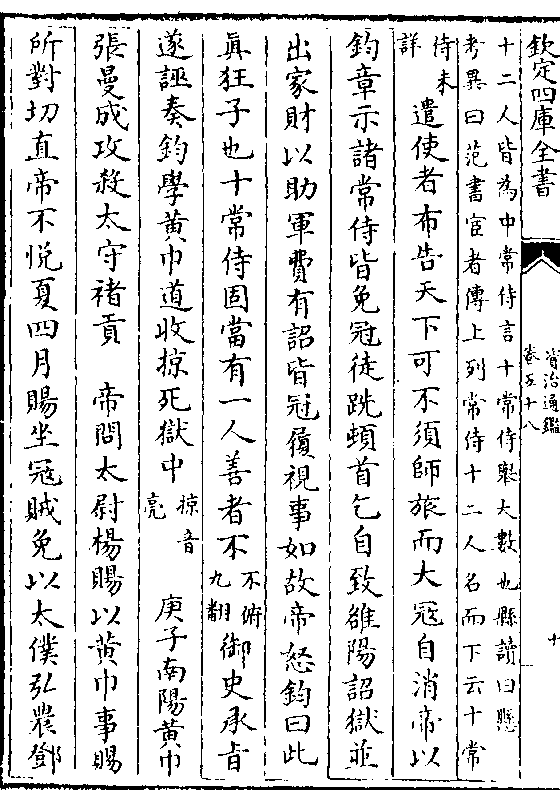 欽定四庫全書
資治通鑑
卷五十八
十
十二人皆為中常侍言十常侍舉大數也縣讀曰懸
考異曰范書宦者傳上列常侍十二人名而下云十常
侍未
詳
遣使者布告天下可不須師旅而大冦自消帝以
鈞章示諸常侍皆免冠徒跣頓首乞自致雒陽詔獄並
出家財以助軍費有詔皆冠履視事如故帝怒鈞曰此
真狂子也十常侍固當有一人善者不
不俯
九翻
御史承旨
遂誣奏鈞學黄巾道收掠死獄中
掠音
亮
庚子南陽黄巾
張曼成攻殺太守褚貢　帝問太尉楊賜以黄巾事賜
所對切直帝不悦夏四月賜坐冦賊免以太僕弘農鄧